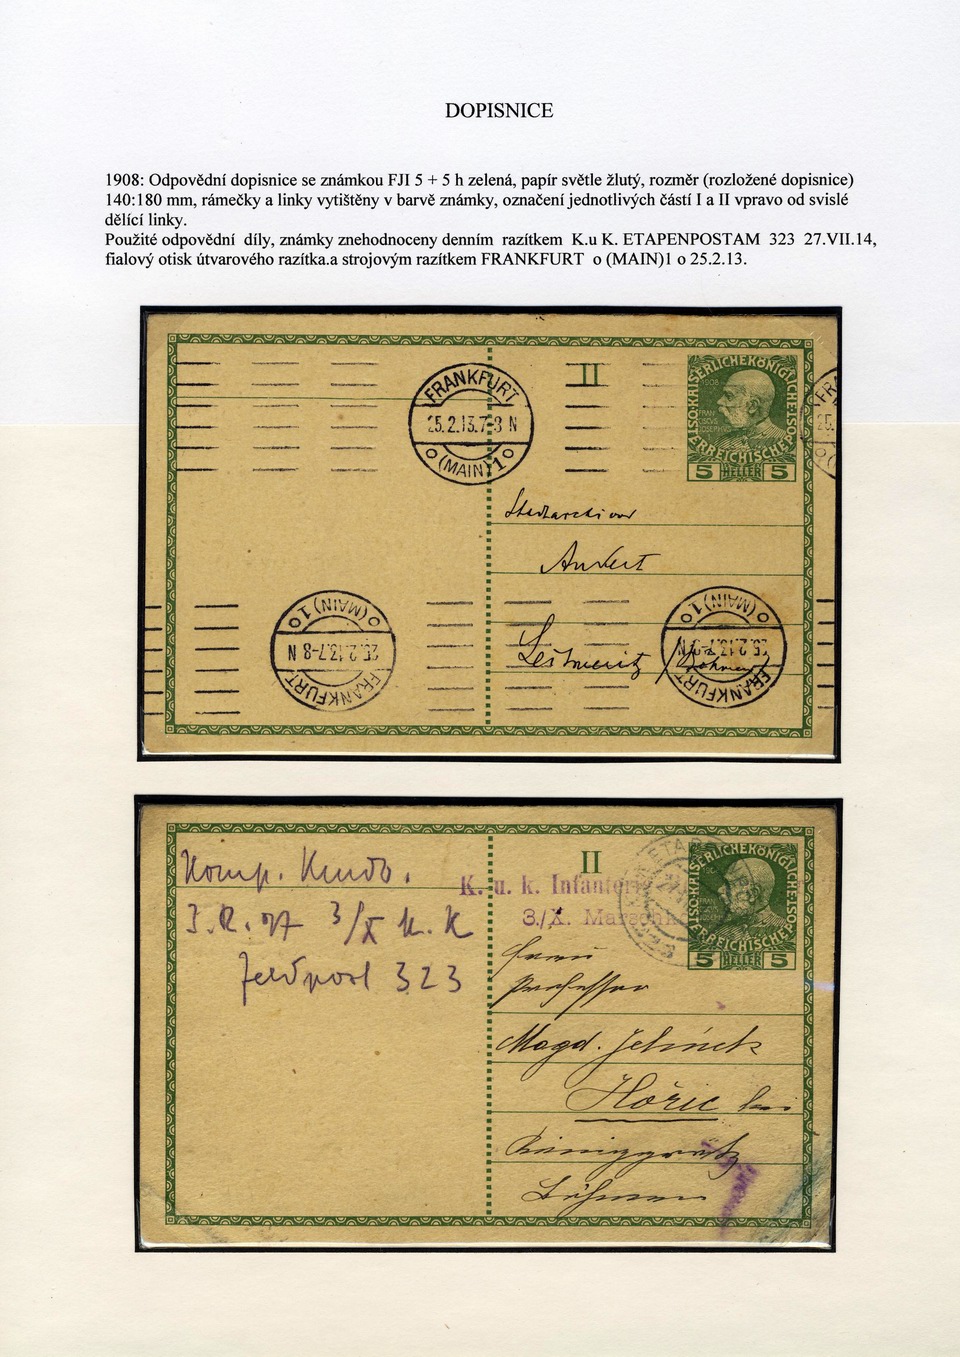 DOPISNICE
1908: Odpovědní dopisnice se známkou FJI 5 + 5 h zelená, papír světle žlutý, rozměr (rozložené dopisnice)
140:180 mm, rámečky a linky vytištěny v barvě známky, označení jednotlivých částí I a II vpravo od svislé
dělící linky.
Použité odpovědní díly, známky znehodnoceny denním razítkem K.u K. ETAPENPOSTAM 323 27.VII.14,
fialový otisk útvarového razítka.a strojovým razítkem FRANKFURT o (MAIN)1 o 25.2.13.
II
FRANKFURT
25.2.13.7-8 N
(MAIN) 1
KAISERLICHEKÖNIGLICHE·POST
ÖSTERREICHISCHE
1908
FRANCISCVS JOSEPH
5 HELLER 5
Stadtarchivar
Ankert
Leitmeritz (Böhmen)
(MAIN) 1
25.2.13.7-8 N
FRANKFURT
(MAIN) 1
25.2.13.7-8 N
FRANKFURT
II
Komp. Kmdo.
I.R. 3/X K.K
Feldpost 323
K. u. k. Infanter
3./X. Marschko
ETAP
5 HELLER 5
Frau
Professor
Magd. Jelinek
Hořic bei
Königgrätz
Böhmen